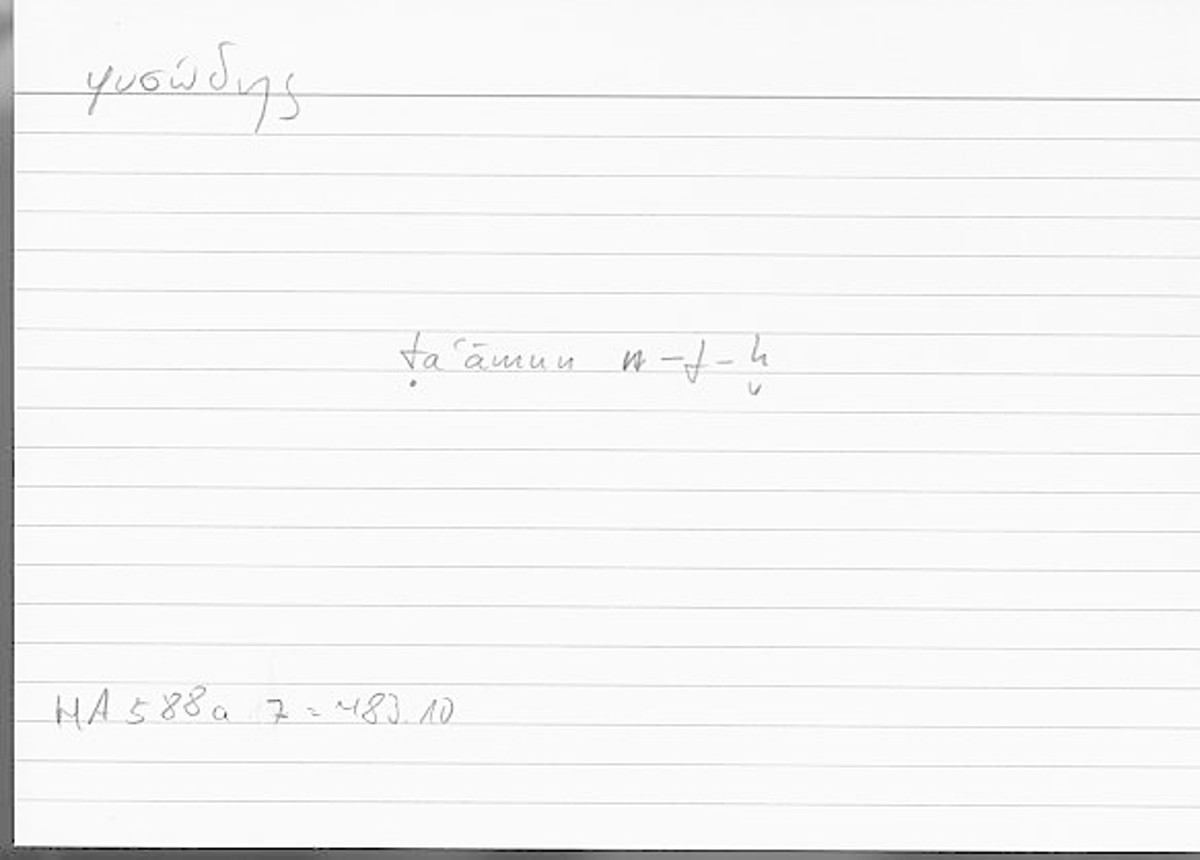 φυσώδης
ṭaʿāmun n-f-ḫ
HA 588a 7 = 483.10